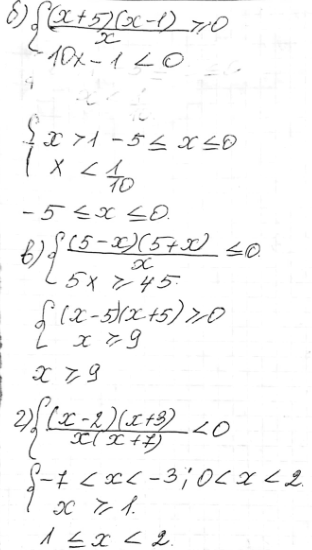 б) { (x+5)(x-1)/x ≥ 0
10x - 1 < 0
{ x > 1 -5 ≤ x ≤ 0
x < 1/10
-5 ≤ x ≤ 0.
в) { (5-x)(5+x)/x ≤ 0
5x ≥ 45
{ (x-5)(x+5) ≥ 0
x ≥ 9
x ≥ 9
г) { (x-2)(x+3)/x(x+7) < 0
{ -7 < x < -3; 0 < x < 2
x ≥ 1.
1 ≤ x < 2.